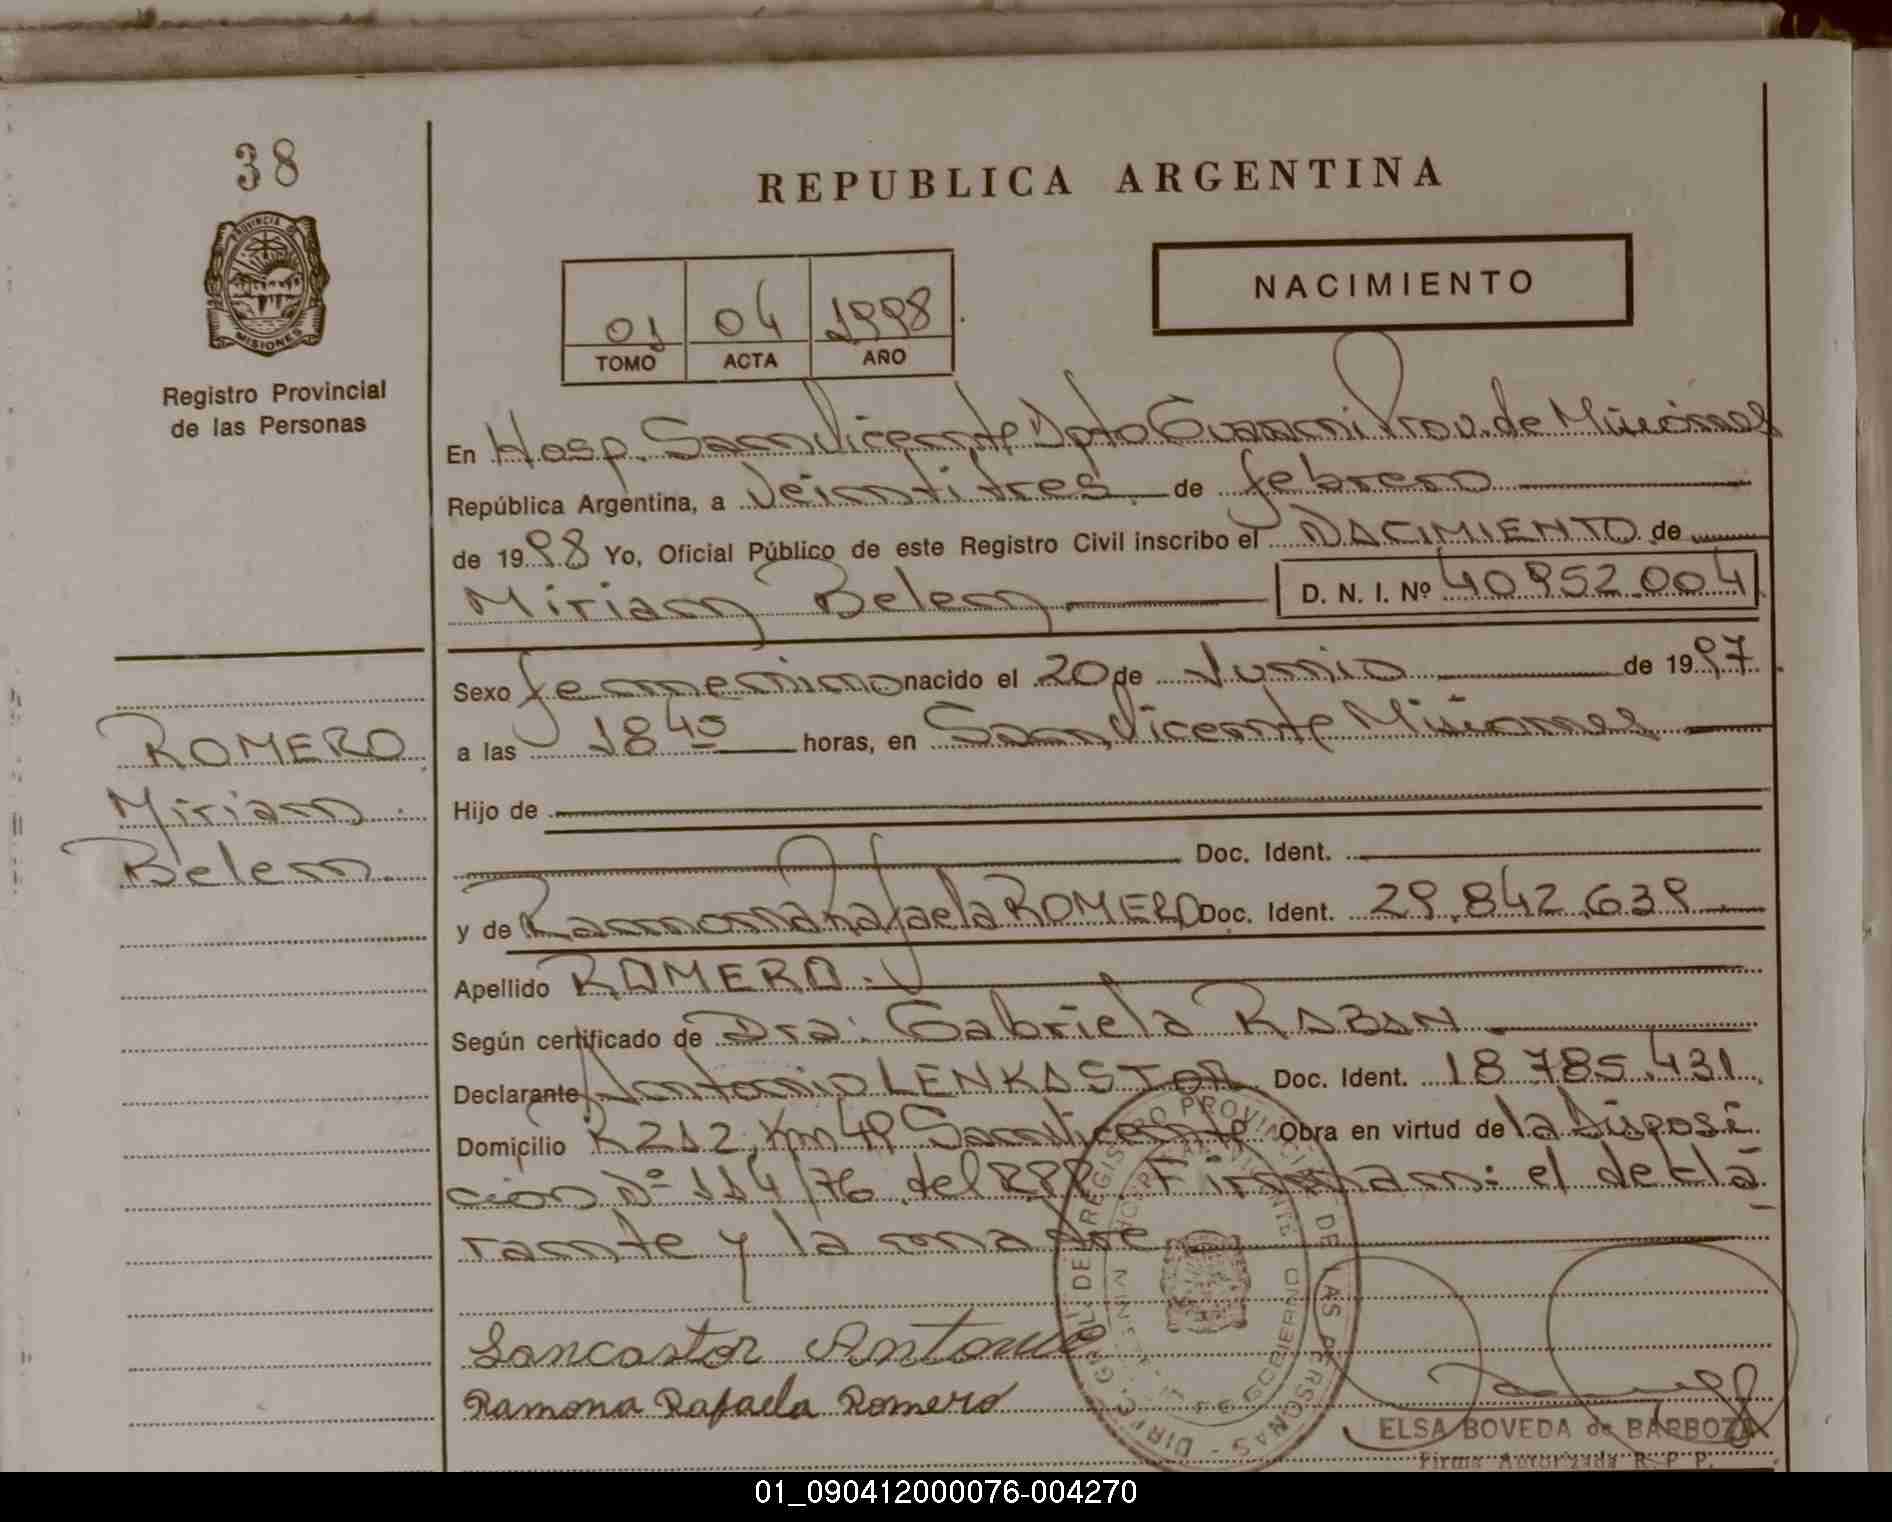 38
PROVINCIA DE
MISIONES
Registro Provincial
de las Personas
REPUBLICA ARGENTINA
01 04 1998
TOMO ACTA AÑO
NACIMIENTO
En Hosp. San Vicente Dpto Guarani Prov. de Misiones
República Argentina, a Veintitres de febrero
de 1998 Yo, Oficial Público de este Registro Civil inscribo el NACIMIENTO de
Miriam Belem D. N. I. Nº 40952.004
Sexo femenino nacido el 20 de Junio de 1997
a las 18 40 horas, en San Vicente Misiones
Hijo de
Doc. Ident.
y de Ramona Rafaela ROMERO Doc. Ident. 29.842.639
Apellido ROMERO.
Según certificado de Dra: Gabriela RABAN
Declarante Antonio LENKASTOR Doc. Ident. 18.785.431
Domicilio R212, Km 49 San Vicente Obra en virtud de la Disposi
cion Nº 114/76 del RPP. Firman: el decla
rante y la madre
ROMERO
Miriam
Belem
Lancastor Antonio
Ramona Rafaela Romero
REGISTRO PROVINCIAL DE LAS PERSONAS
ELSA BOVEDA de BARBOZA
Firma Autorizada R. P. P.
01_090412000076-004270